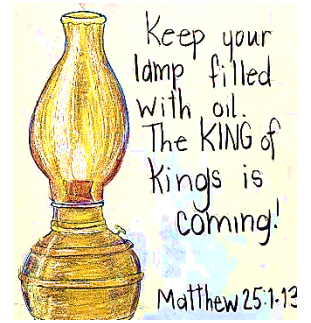 Keep your
lamp filled
with oil.
The KING of
Kings is
coming!
Matthew 25:1-13